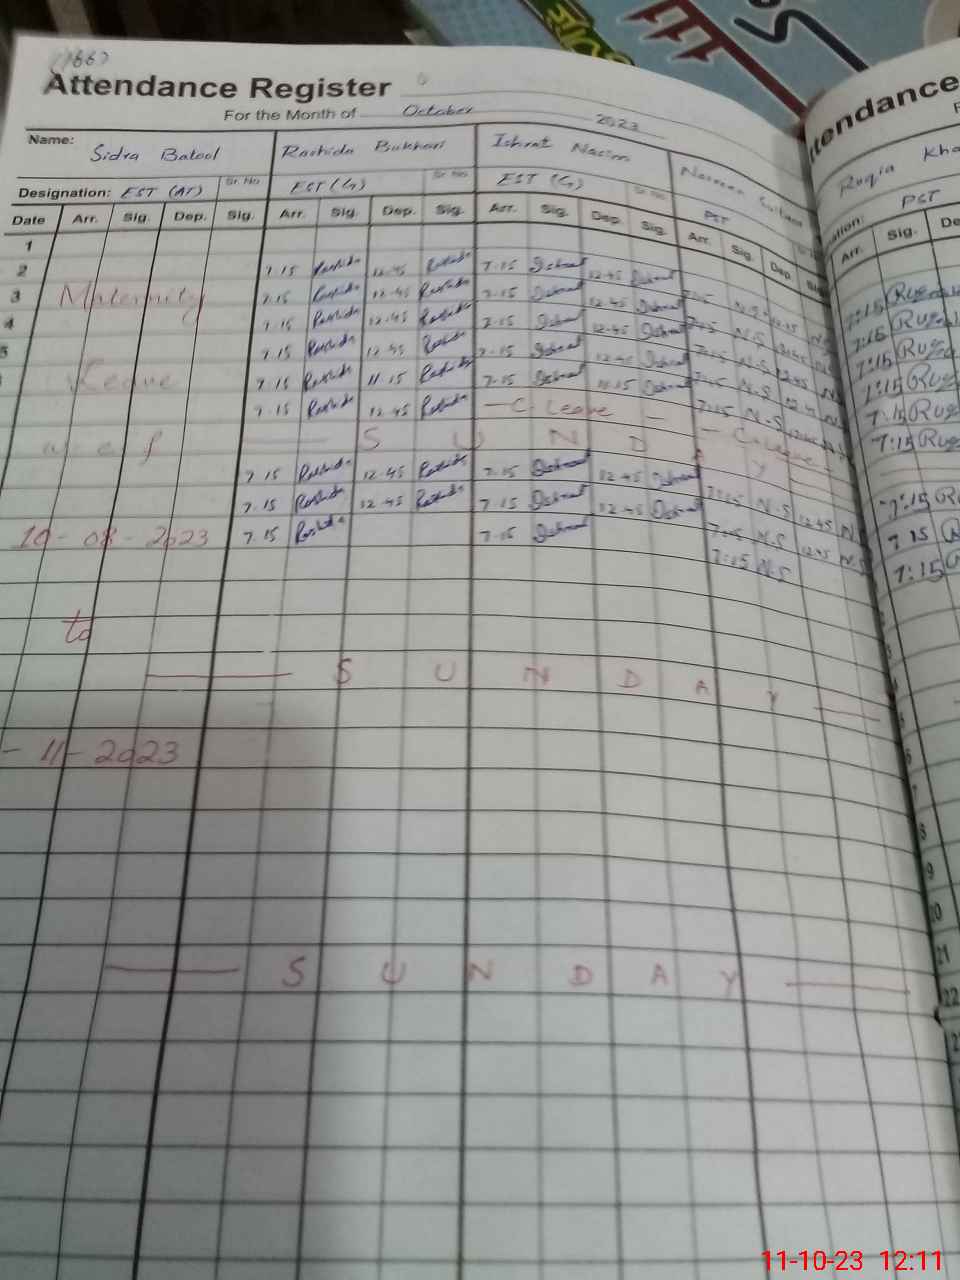 Attendance Register
For the Month of October 2023
Name: Sidra Batool Rashida Bukhari Ishrat Nasim Nasreen Sultana
Designation: EST (AT) Sr. No EST (G) Sr. No EST (G) Sr. No PST
Date Arr. Sig. Dep. Sig. Arr. Sig. Dep. Sig. Arr. Sig. Dep. Sig. Arr. Sig. Dep.
1
2 7.15 Rashida 12.45 Rashida 7.15 Ishrat 12.45 Ishrat
3 Maternity 7.15 Rashida 12.45 Rashida 7.15 Ishrat 12.45 Ishrat
4 7.15 Rashida 12.45 Rashida 7.15 Ishrat 12.45 Ishrat
5 7.15 Rashida 12.45 Rashida 7.15 Ishrat 12.45 Ishrat
Leave 7.15 Rashida 11.15 Rashida 7.15 Ishrat 11.15 Ishrat
7.15 Rashida 12.45 Rashida — C. Leave — — C. Leave
w.e.f S U N D A Y
7.15 Rashida 12.45 Rashida 7.15 Ishrat 12.45 Ishrat 7:15 N.S 12.45 N.S
7.15 Rashida 12.45 Rashida 7.15 Ishrat 12.45 Ishrat 7:15 N.S 12.45 N.S
10-08-2023 7.15 Rashida 7.15 Ishrat 7:15 N.S
to
S U N D A Y
- 11-2023
S U N D A Y
tendance
Ruqia Kha
PST
Arr. Sig. De
7:15
7:15
7:15
7:15
7:15
7:15
7:15
7:15
7:15
9
20
21
22
11-10-23 12:11